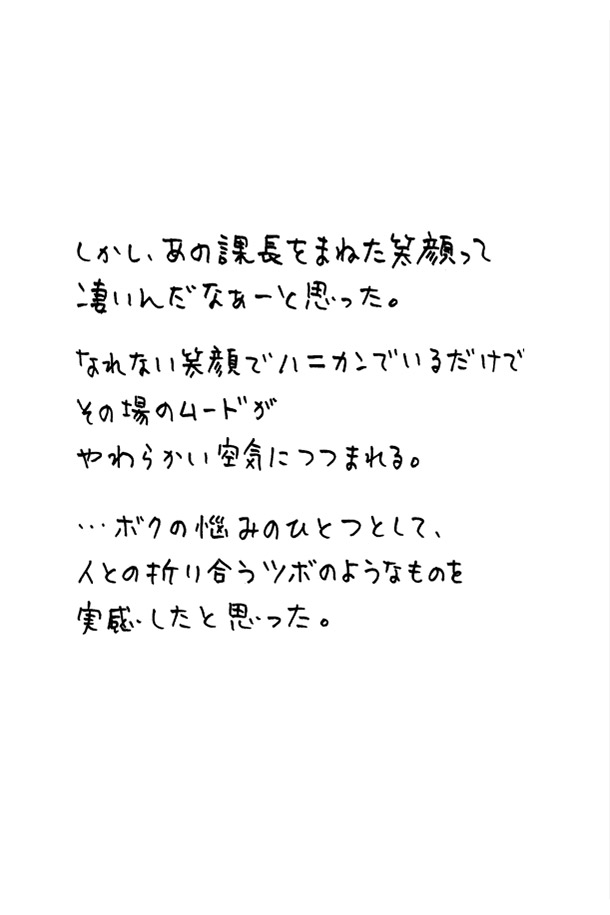 しかし、あの課長をまねた笑顔って
凄いんだなぁーと思った。
なれない笑顔でハニカンでいるだけで
その場のムードが
やわらかい空気につつまれる。
…ボクの悩みのひとつとして、
人との折り合うツボのようなものを
実感したと思った。